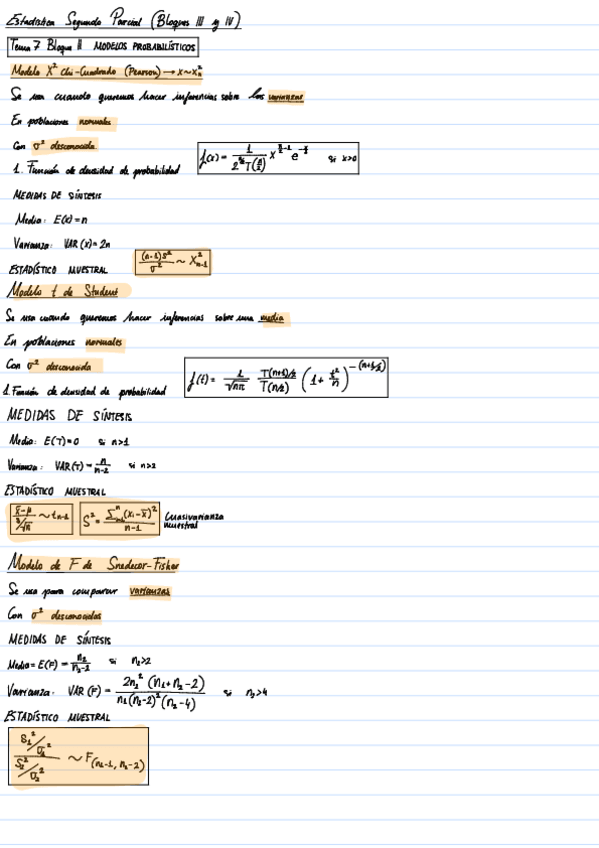 Estadística Segundo Parcial (Bloques III y IV)
Tema 7 Bloque II MODELOS PROBABILÍSTICOS
Modelo X² Chi-Cuadrado (Pearson) → X~Xₙ²
Se usa cuando queremos hacer inferencias sobre las varianzas
En poblaciones normales
Con σ² desconocida
1. Función de densidad de probabilidad f(x) = 1/(2^(n/2) Γ(n/2)) x^(n/2 - 1) e^(-x/2) si x>0
MEDIDAS DE SÍNTESIS
Media: E(x) = n
Varianza: VAR (x) = 2n
ESTADÍSTICO MUESTRAL (n-1)s²/σ² ~ X²ₙ₋₁
Modelo t de Student
Se usa cuando queremos hacer inferencias sobre una media
En poblaciones normales
Con σ² desconocida
1. Función de densidad de probabilidad f(t) = 1/√nπ T(n+1)/2 / T(n/2) (1 + t²/n)^-(n+1/2)
MEDIDAS DE SÍNTESIS
Media: E(T) = 0 si n>1
Varianza: VAR(T) = n/(n-2) si n>2
ESTADÍSTICO MUESTRAL
(x̄-μ)/(s/√n) ~ tₙ₋₁ S² = Σⁿᵢ₌₁(xᵢ-x̄)²/(n-1) Cuasivarianza muestral
Modelo de F de Snedecor-Fisher
Se usa para comparar varianzas
Con σ² desconocidas
MEDIDAS DE SÍNTESIS
Media = E(F) = n₂/(n₂-2) si n₂>2
Varianza: VAR (F) = 2n₂² (n₁+n₂-2) / n₁(n₂-2)²(n₂-4) si n₂>4
ESTADÍSTICO MUESTRAL
(S₁²/σ₁²)/(S₂²/σ₂²) ~ F(n₁-1, n₂-2)